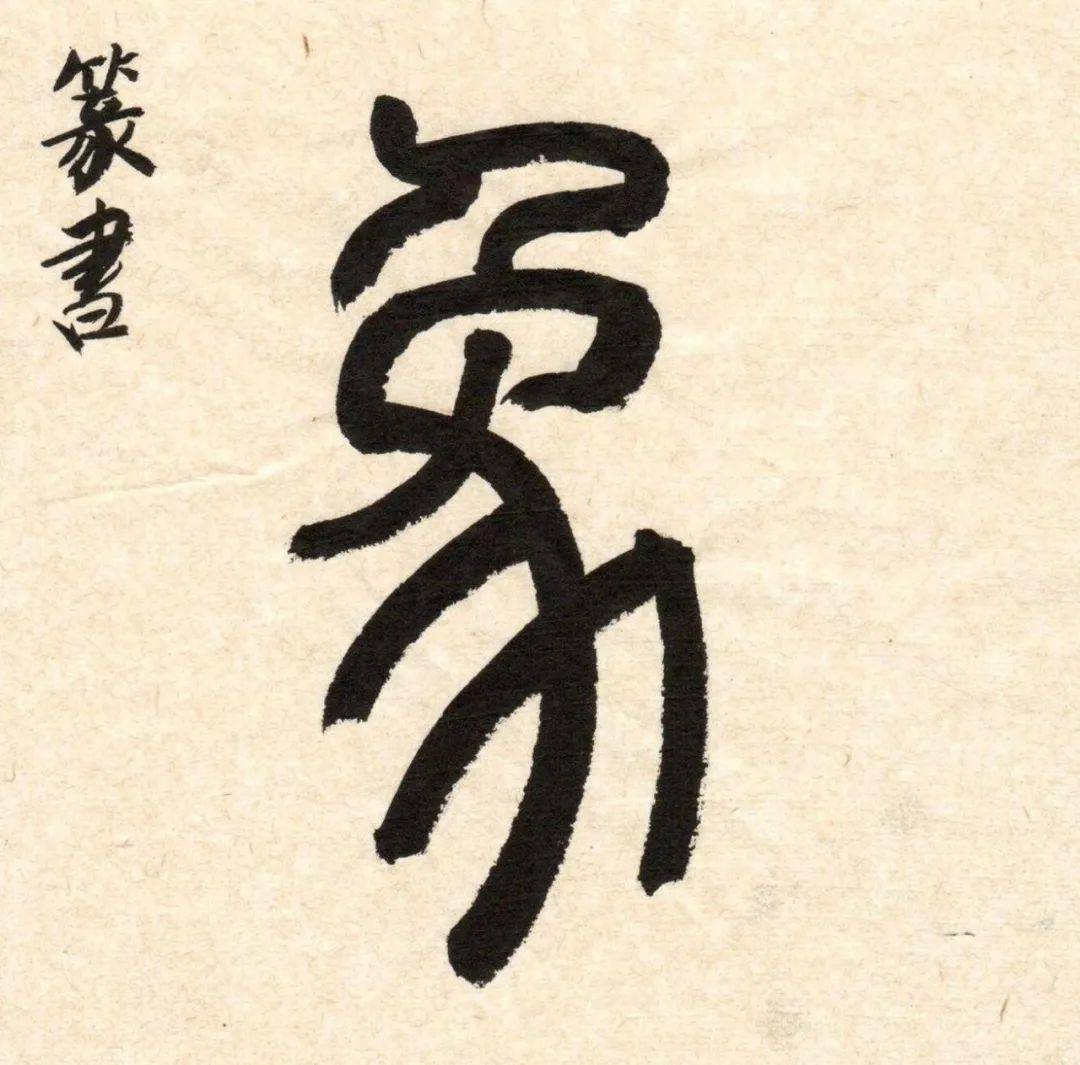 篆書
象